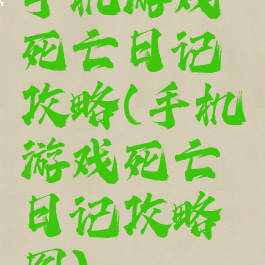 手机游戏
死亡日记
攻略(手机
游戏死亡
日记攻略
图)